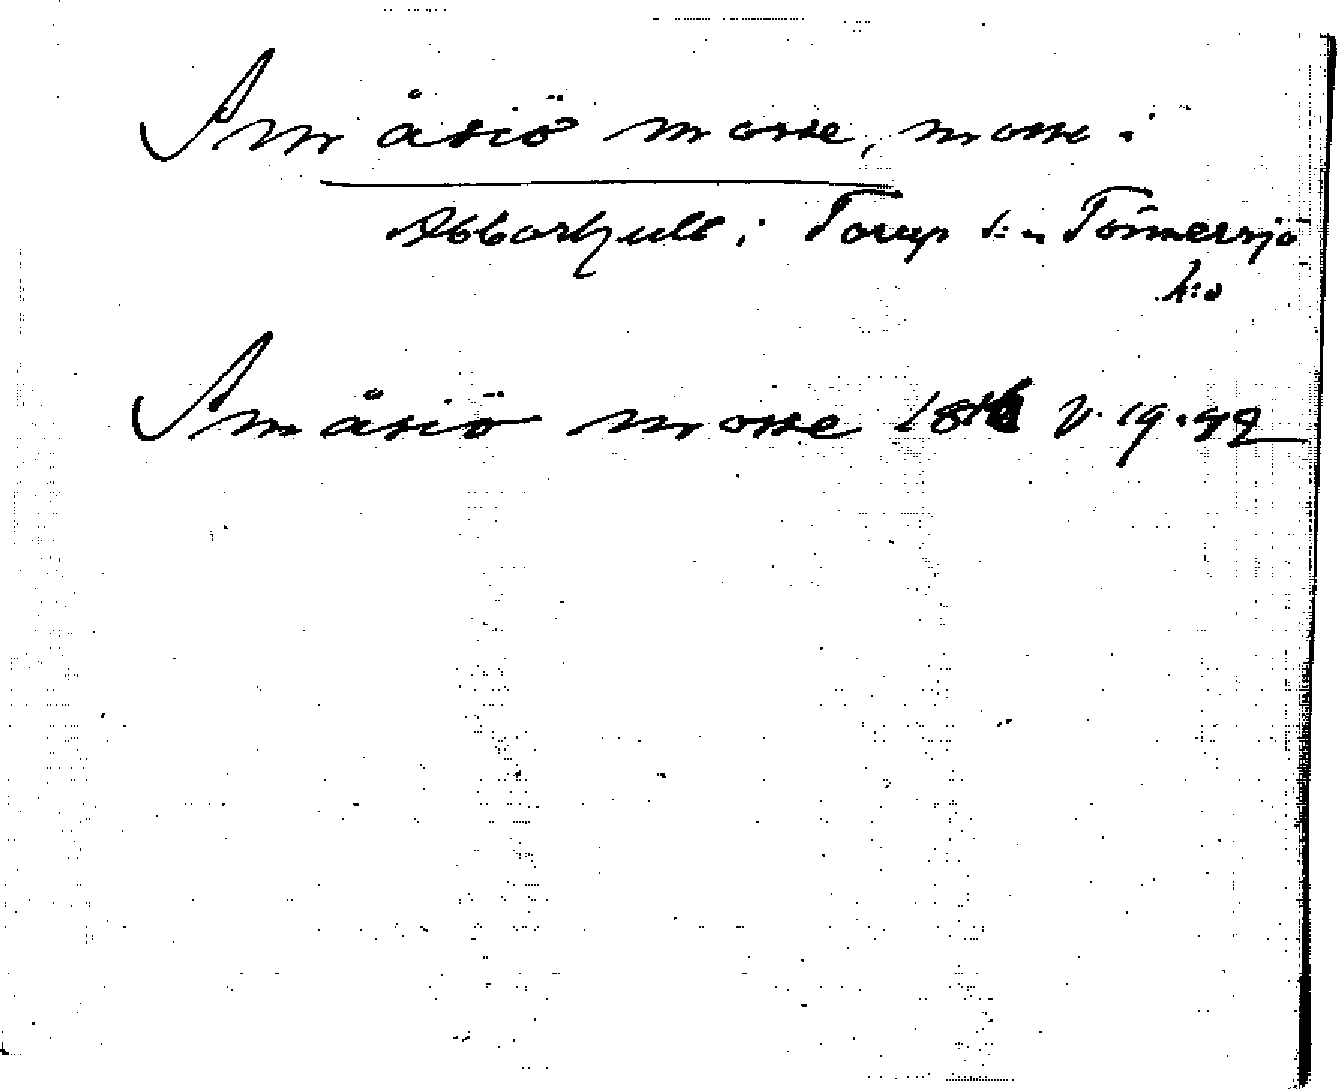 Småsiö mosse, mosse i
Abborhult i Torup s:n Tönnersjö
h:d
Småsiö mosse V. 19.